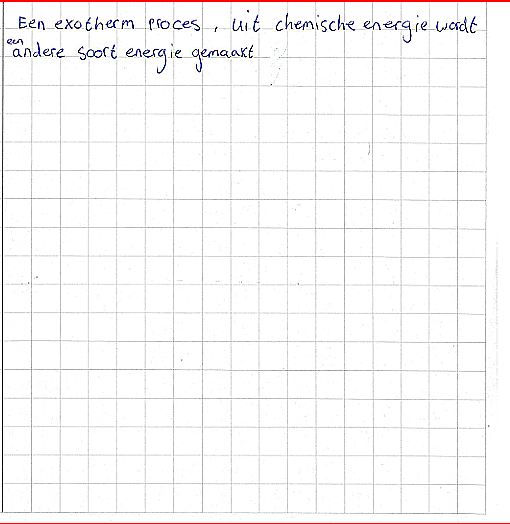 Een exotherm proces, uit chemische energie wordt
een andere soort energie gemaakt